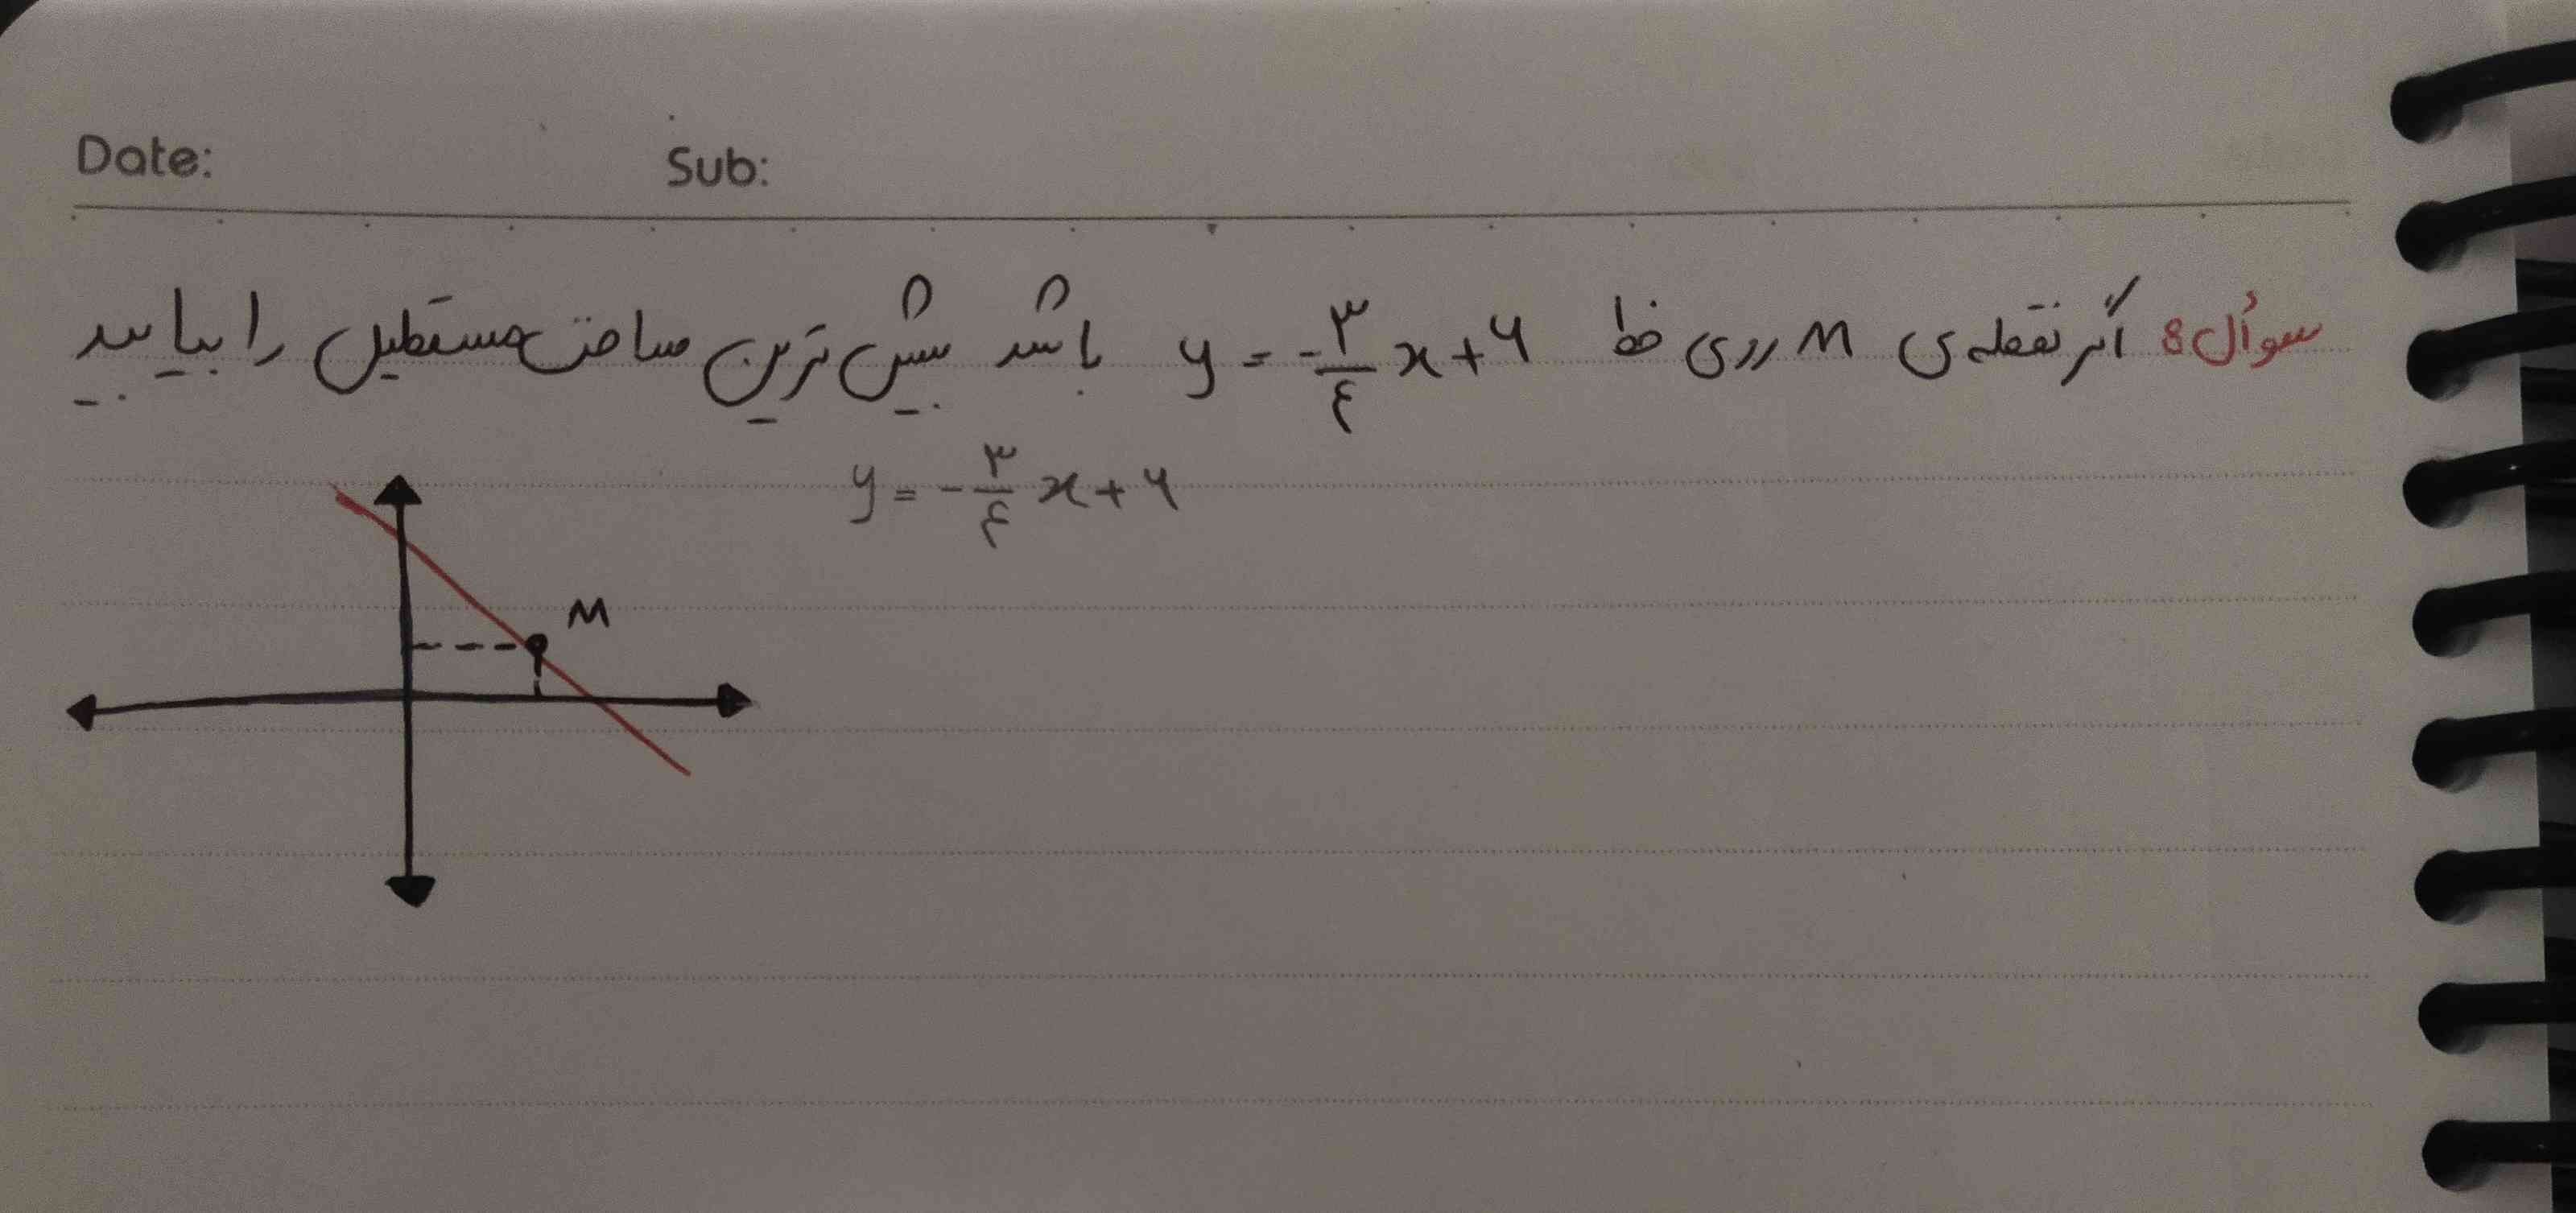 Date: Sub:
سوال: اگر نقطه‌ی M روی خط y = -۳/۴ x + ۶ باشد بیش‌ترین مساحت مستطیل را بیابید
y = -۳/۴ x + ۶
M